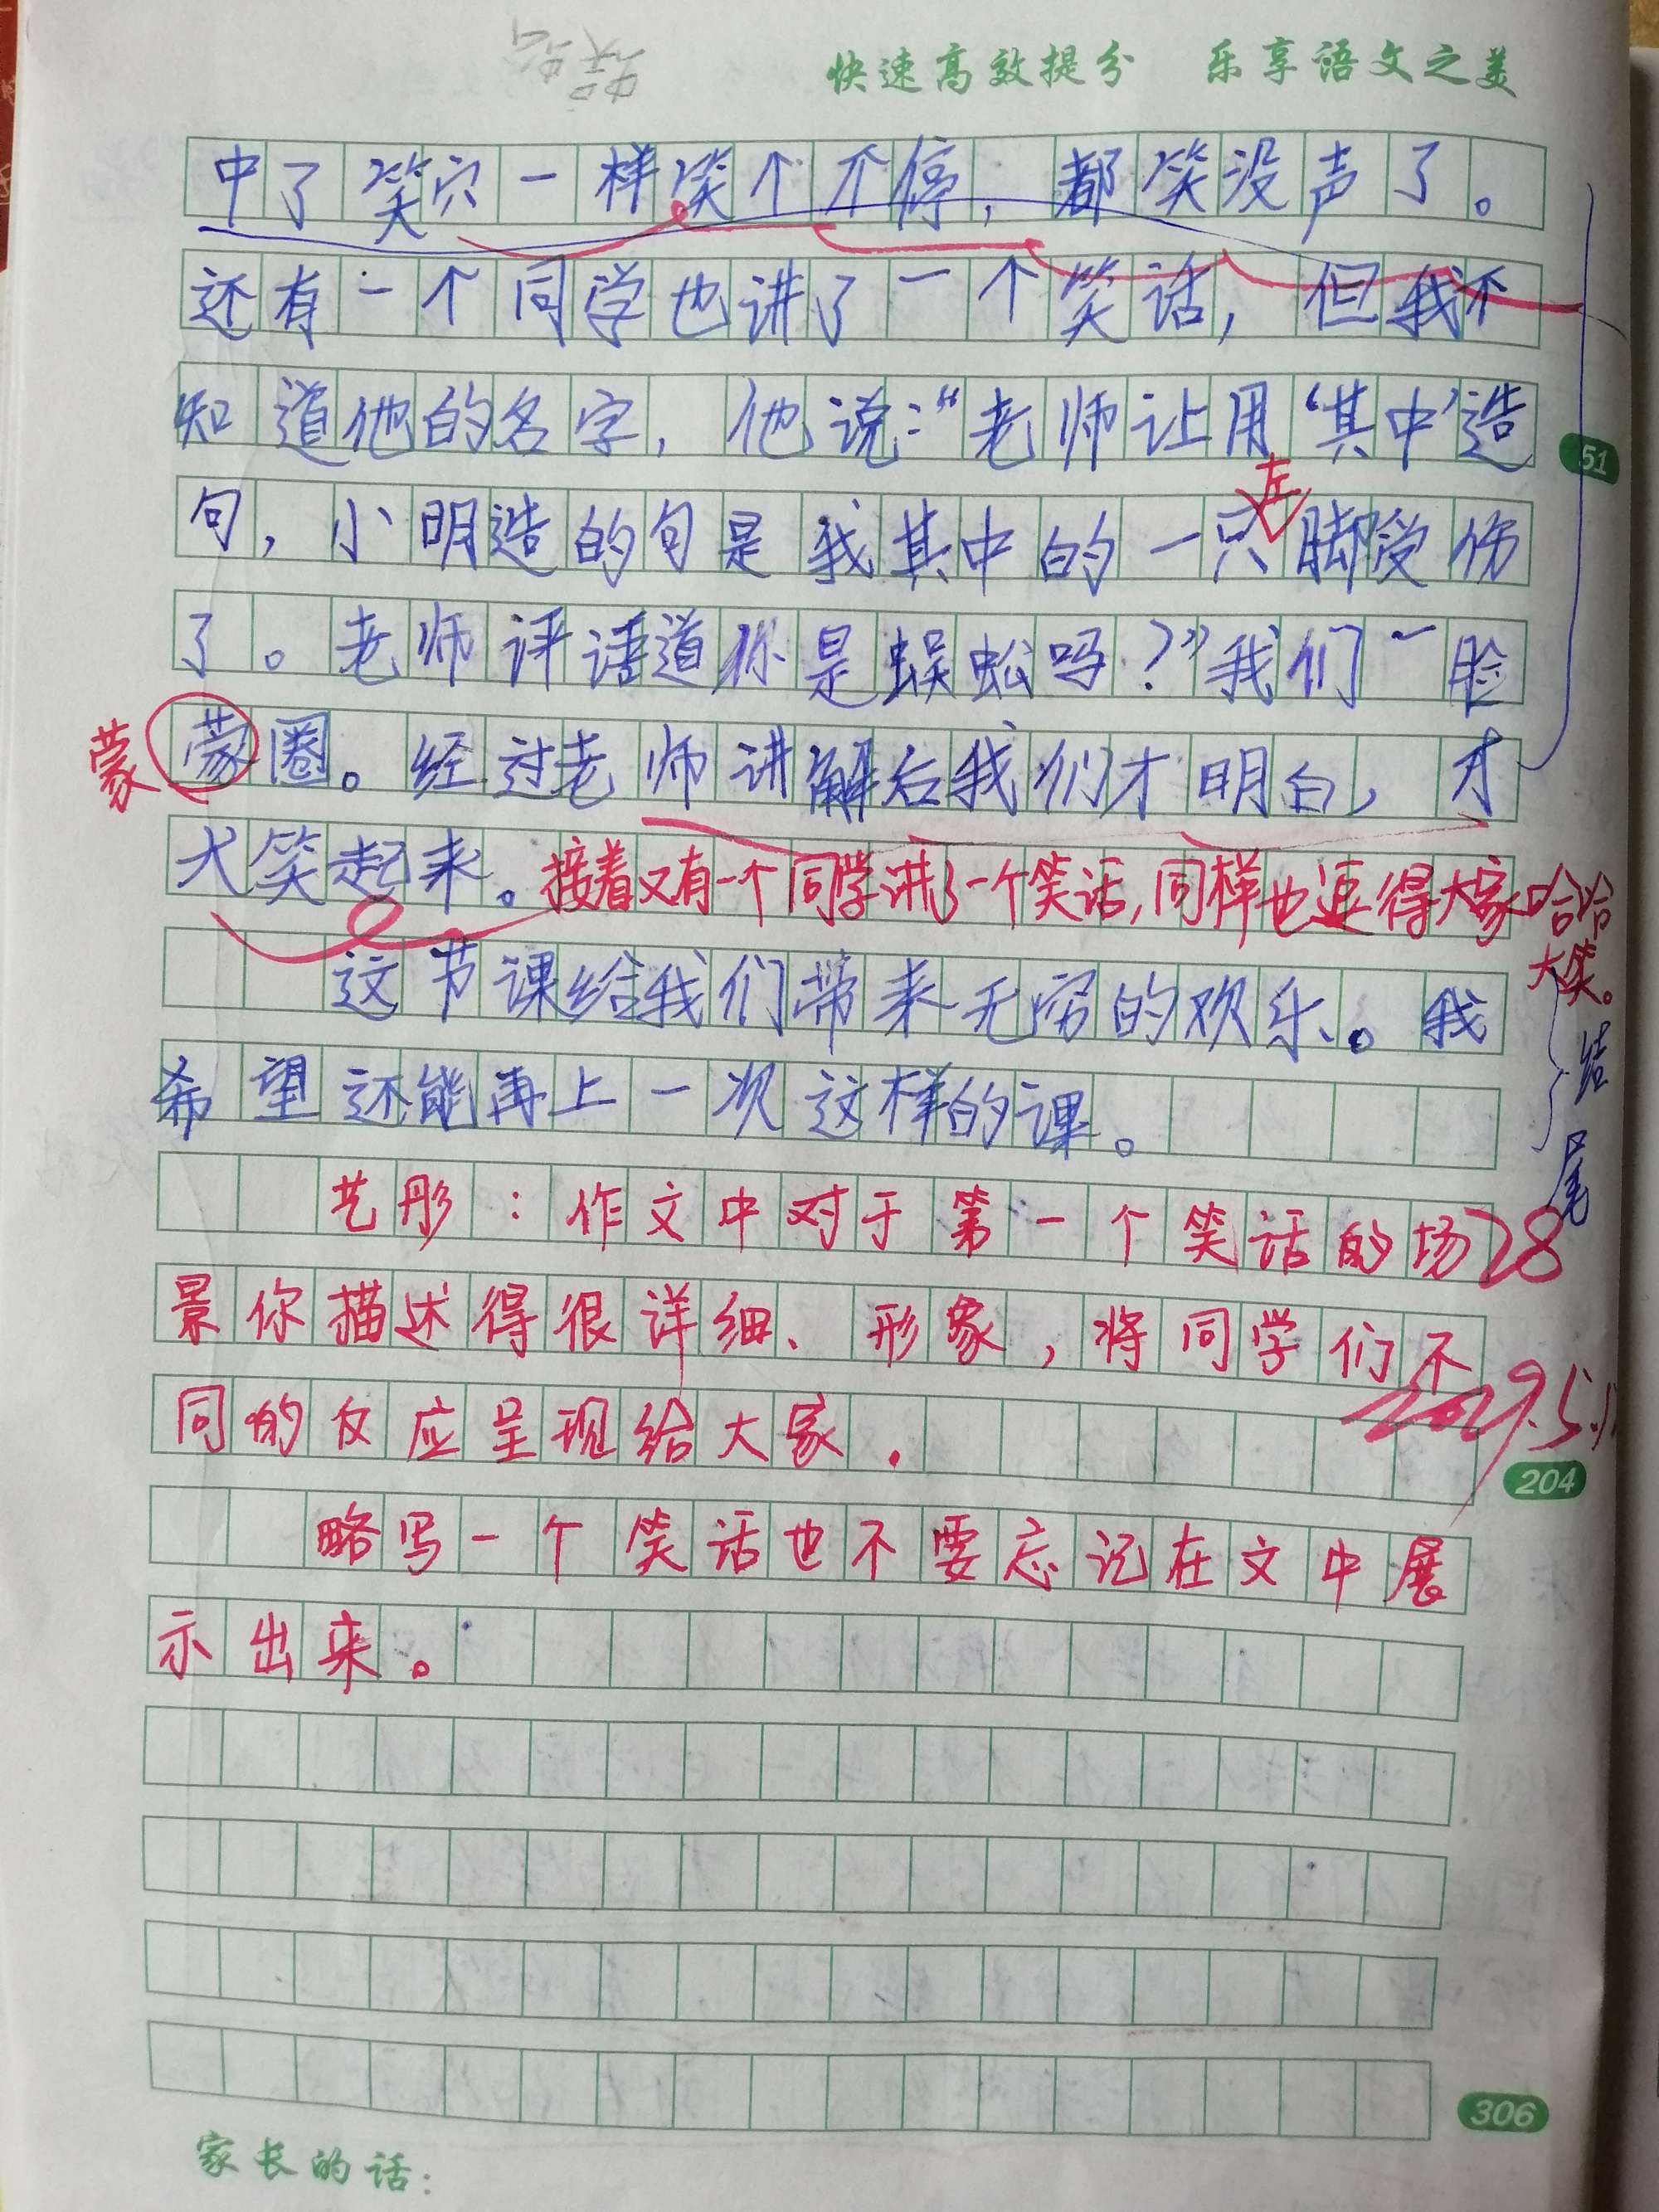 快速高效提分 乐享语文之美
中了笑穴一样笑个不停，都笑没声了。
还有一个同学也讲了一个笑话，但我不
知道他的名字，他说：“老师让用‘其中’造
51
左
句，小明造的句是我其中的一只脚受伤
了。老师评语道你是蜈蚣吗？”我们一脸
蒙
蒙圈。经过老师讲解后我们才明白，才
大笑起来。接着又有一个同学讲了一个笑话，同样也逗得大家哈哈
大笑。
这节课给我们带来无穷的欢乐。我
结
希望还能再上一次这样的课。
尾
艺彤：作文中对于第一个笑话的场
28
景你描述得很详细、形象，将同学们不
同的反应呈现给大家.
204
略写一个笑话也不要忘记在文中展
示出来。
306
家长的话：